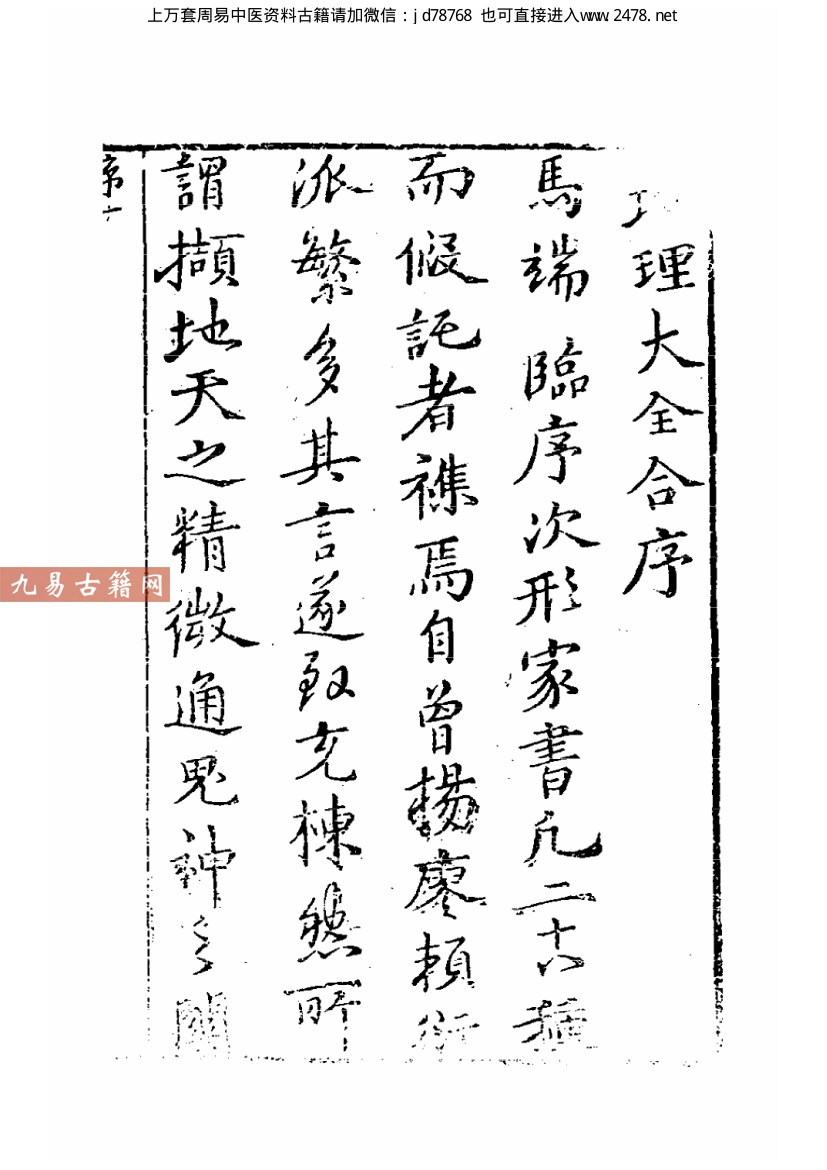 上万套周易中医资料古籍请加微信：jd78768 也可直接进入www.2478.net
理大全合序
馬端臨序次形家書凡二十八種
而假託者襍焉自曾楊廖賴衍
派繁多其言遂致充棟然所
謂擷地天之精微通鬼神之關
序
九易古籍网